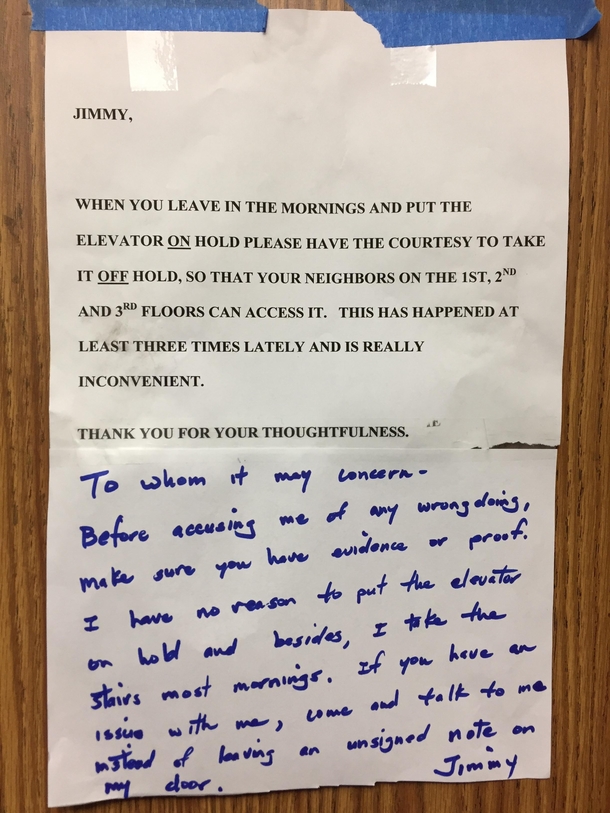 JIMMY,
WHEN YOU LEAVE IN THE MORNINGS AND PUT THE
ELEVATOR ON HOLD PLEASE HAVE THE COURTESY TO TAKE
IT OFF HOLD, SO THAT YOUR NEIGHBORS ON THE 1ST, 2ND
AND 3RD FLOORS CAN ACCESS IT. THIS HAS HAPPENED AT
LEAST THREE TIMES LATELY AND IS REALLY
INCONVENIENT.
THANK YOU FOR YOUR THOUGHTFULNESS.
To whom it may concern-
Before accusing me of any wrongdoing,
make sure you have evidence or proof.
I have no reason to put the elevator
on hold and besides, I take the
stairs most mornings. If you have an
issue with me, come and talk to me
instead of leaving an unsigned note on
my door. Jimmy